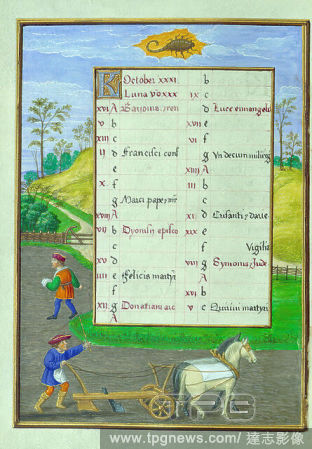 KL October xxxi
Luna v xxx
xvi A
v b
xiii c
ii d Francisci conf
e
x f
g Marci pape
xviii A
vii b
c
xv d
iiii e Felicis martyr
f
xii g Donatiani
A
b
ix c
d Luce euuangeli
xvii e
vi f
g
xiiii A
iii b
c
xi d
xix e
f Vigilia
viii g Symonis Jude
A
xvi b
v c Quintini martyri
TPG
www.tpgnews.com/達志影像